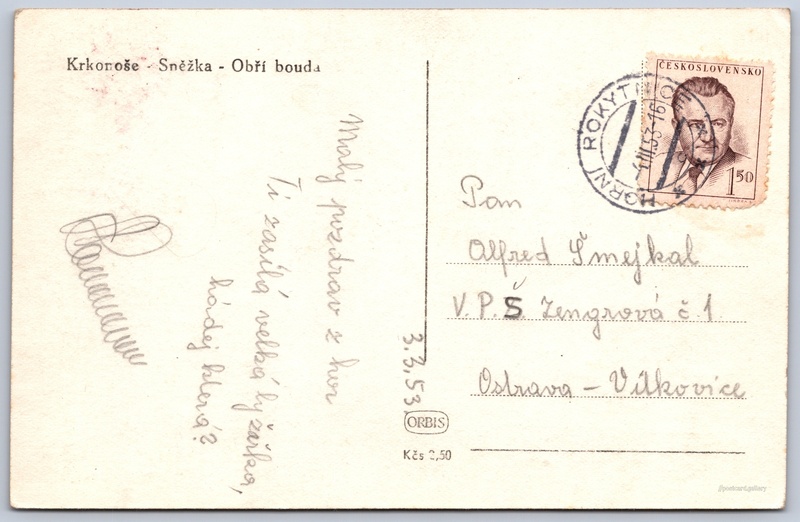 Krkonoše - Sněžka - Obří bouda
Malý pozdrav z hor
Ti zasílá velká lyžařka,
hádej která?
3.3.53
ORBIS
Kčs 2,50
ČESKOSLOVENSKO
1 50
HORNÍ ROKYTNICE
4.III.53-16
Pan
Alfred Šmejkal
V.P.Š Zengrová č 1.
Ostrava - Vítkovice
@postcard.gallery